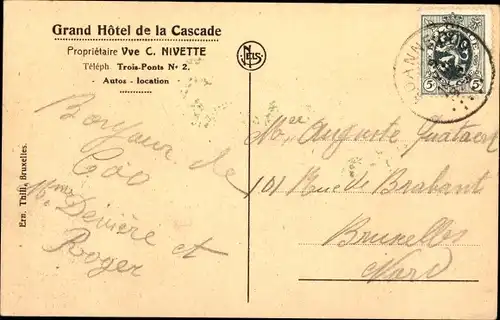 Grand Hôtel de la Cascade
Propriétaire Vve C. NIVETTE
Téléph. Trois-Ponts No 2.
- Autos - location -
NELS
5c 5c
Bonjour de
Coo
Mme Devière et
Roger
Ern. Thill, Bruxelles.
Auguste
101 Rue de Brabant
Bruxelles
Nord